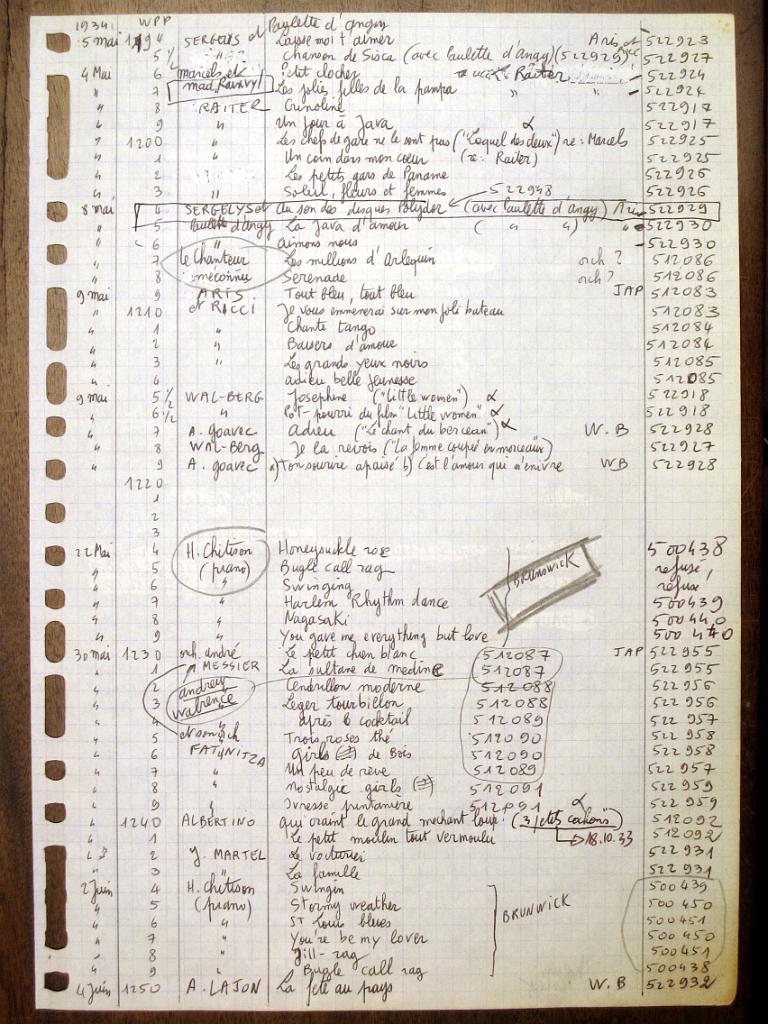 1934 WPP Paulette d'angy
5 mai 1194 SERGELYS et Laisse moi t'aimer Aris et Ricc 522923
" 5 1/2 " Chanson de Sisca (avec Paulette d'angy) (522929) 522927
4 Mai 6 marcels et P'tit clocher Raiter 522924
" 7 mad. Rainvyl Les jolies filles de la pampa " " 522924
" 8 RAITER Crinoline 522917
" 9 " Un jour à Java 522917
" 1200 " Les chefs de gare ne le sont pas ("Lequel des deux") re: Marcels 522925
" 1 " Un coin dans mon coeur (re: Raiter) 522925
" 2 " Les petits gars de Paname 522926
" 3 " Soleil, fleurs et femmes 522948 522926
8 mai 4 SERGELYS et Au son des disques Polydor (avec Paulette d'angy) Aris 522929
" 5 Paulette d'angy La Java d'amour ( " " ) " 522930
" 6 " aimons nous 522930
" 7 le Chanteur Les millions d'Arlequin orch ? 512086
" 8 méconnu Serenade orch ? 512086
9 mai 9 ARIS Tout bleu, tout bleu JAP 512083
" 1210 et RICCI Je vous emmenerai sur mon joli bateau 512083
" 1 " Chante tango 512084
" 2 " Baisers d'amour 512084
" 3 " Les grands yeux noirs 512085
" 4 adieu belle jeunesse 512085
9 mai 5 1/2 WAL-BERG Josephine ("Little women") α 522918
" 6 1/2 " Pot-pourri du film "Little women" α 522918
" 7 A. goavec Adieu ("Le chant du berceau") α W.B 522928
" 8 WAL-Berg Je la revois ("La femme coupée en morceaux") 522927
" 9 A. goavec a) ton sourire apaisé b) C'est l'amour qui m'enivre WB 522928
1220
1
2
3
22 Mai 4 H. Chitison Honeysuckle rose 500438
" 5 (piano) Bugle call rag BRUNSWICK refusé,
" 6 " Swinging refusé
" 7 " Harlem Rhythm dance 500439
" 8 " Nagasaki 500440
" 9 " You gave me everything but love 500440
30 mai 1230 orch. andré Le petit chien blanc 512087 JAP 522955
" 1 MESSIER La sultane de medine 512087 522955
" 2 andrew Cendrillon moderne 512088 522956
" 3 walrence Leger tourbillon 512088 522956
" 4 " après le cocktail 512089 522957
" 5 et son orch Trois roses thé 512090 522958
" 6 FATINITZA Girls de Bois 512090 522958
" 7 " Un peu de reve 512089 522957
" 8 " nostalgic girls 512091 522959
" 9 " Ivresse printanière 512091 522959
" 1240 ALBERTINO qui craint le grand mechant loup α (3 p'tits cochons) 512092
" 1 Le petit moulin tout vermoulu → 18.10.33 512092
2 J. MARTEL Le voiturier 522931
" 3 La famille 522931
2 Juin 4 H. Chitison Swingin 500439
" 5 (piano) Stormy weather 500450
" 6 " ST Louis blues BRUNWICK 500451
" 7 " You're be my lover 500450
" 8 " Jill-rag 500451
" 9 " Bugle call rag 500438
4 Juin 1250 A. LAJON La fete au pays W.B 522932